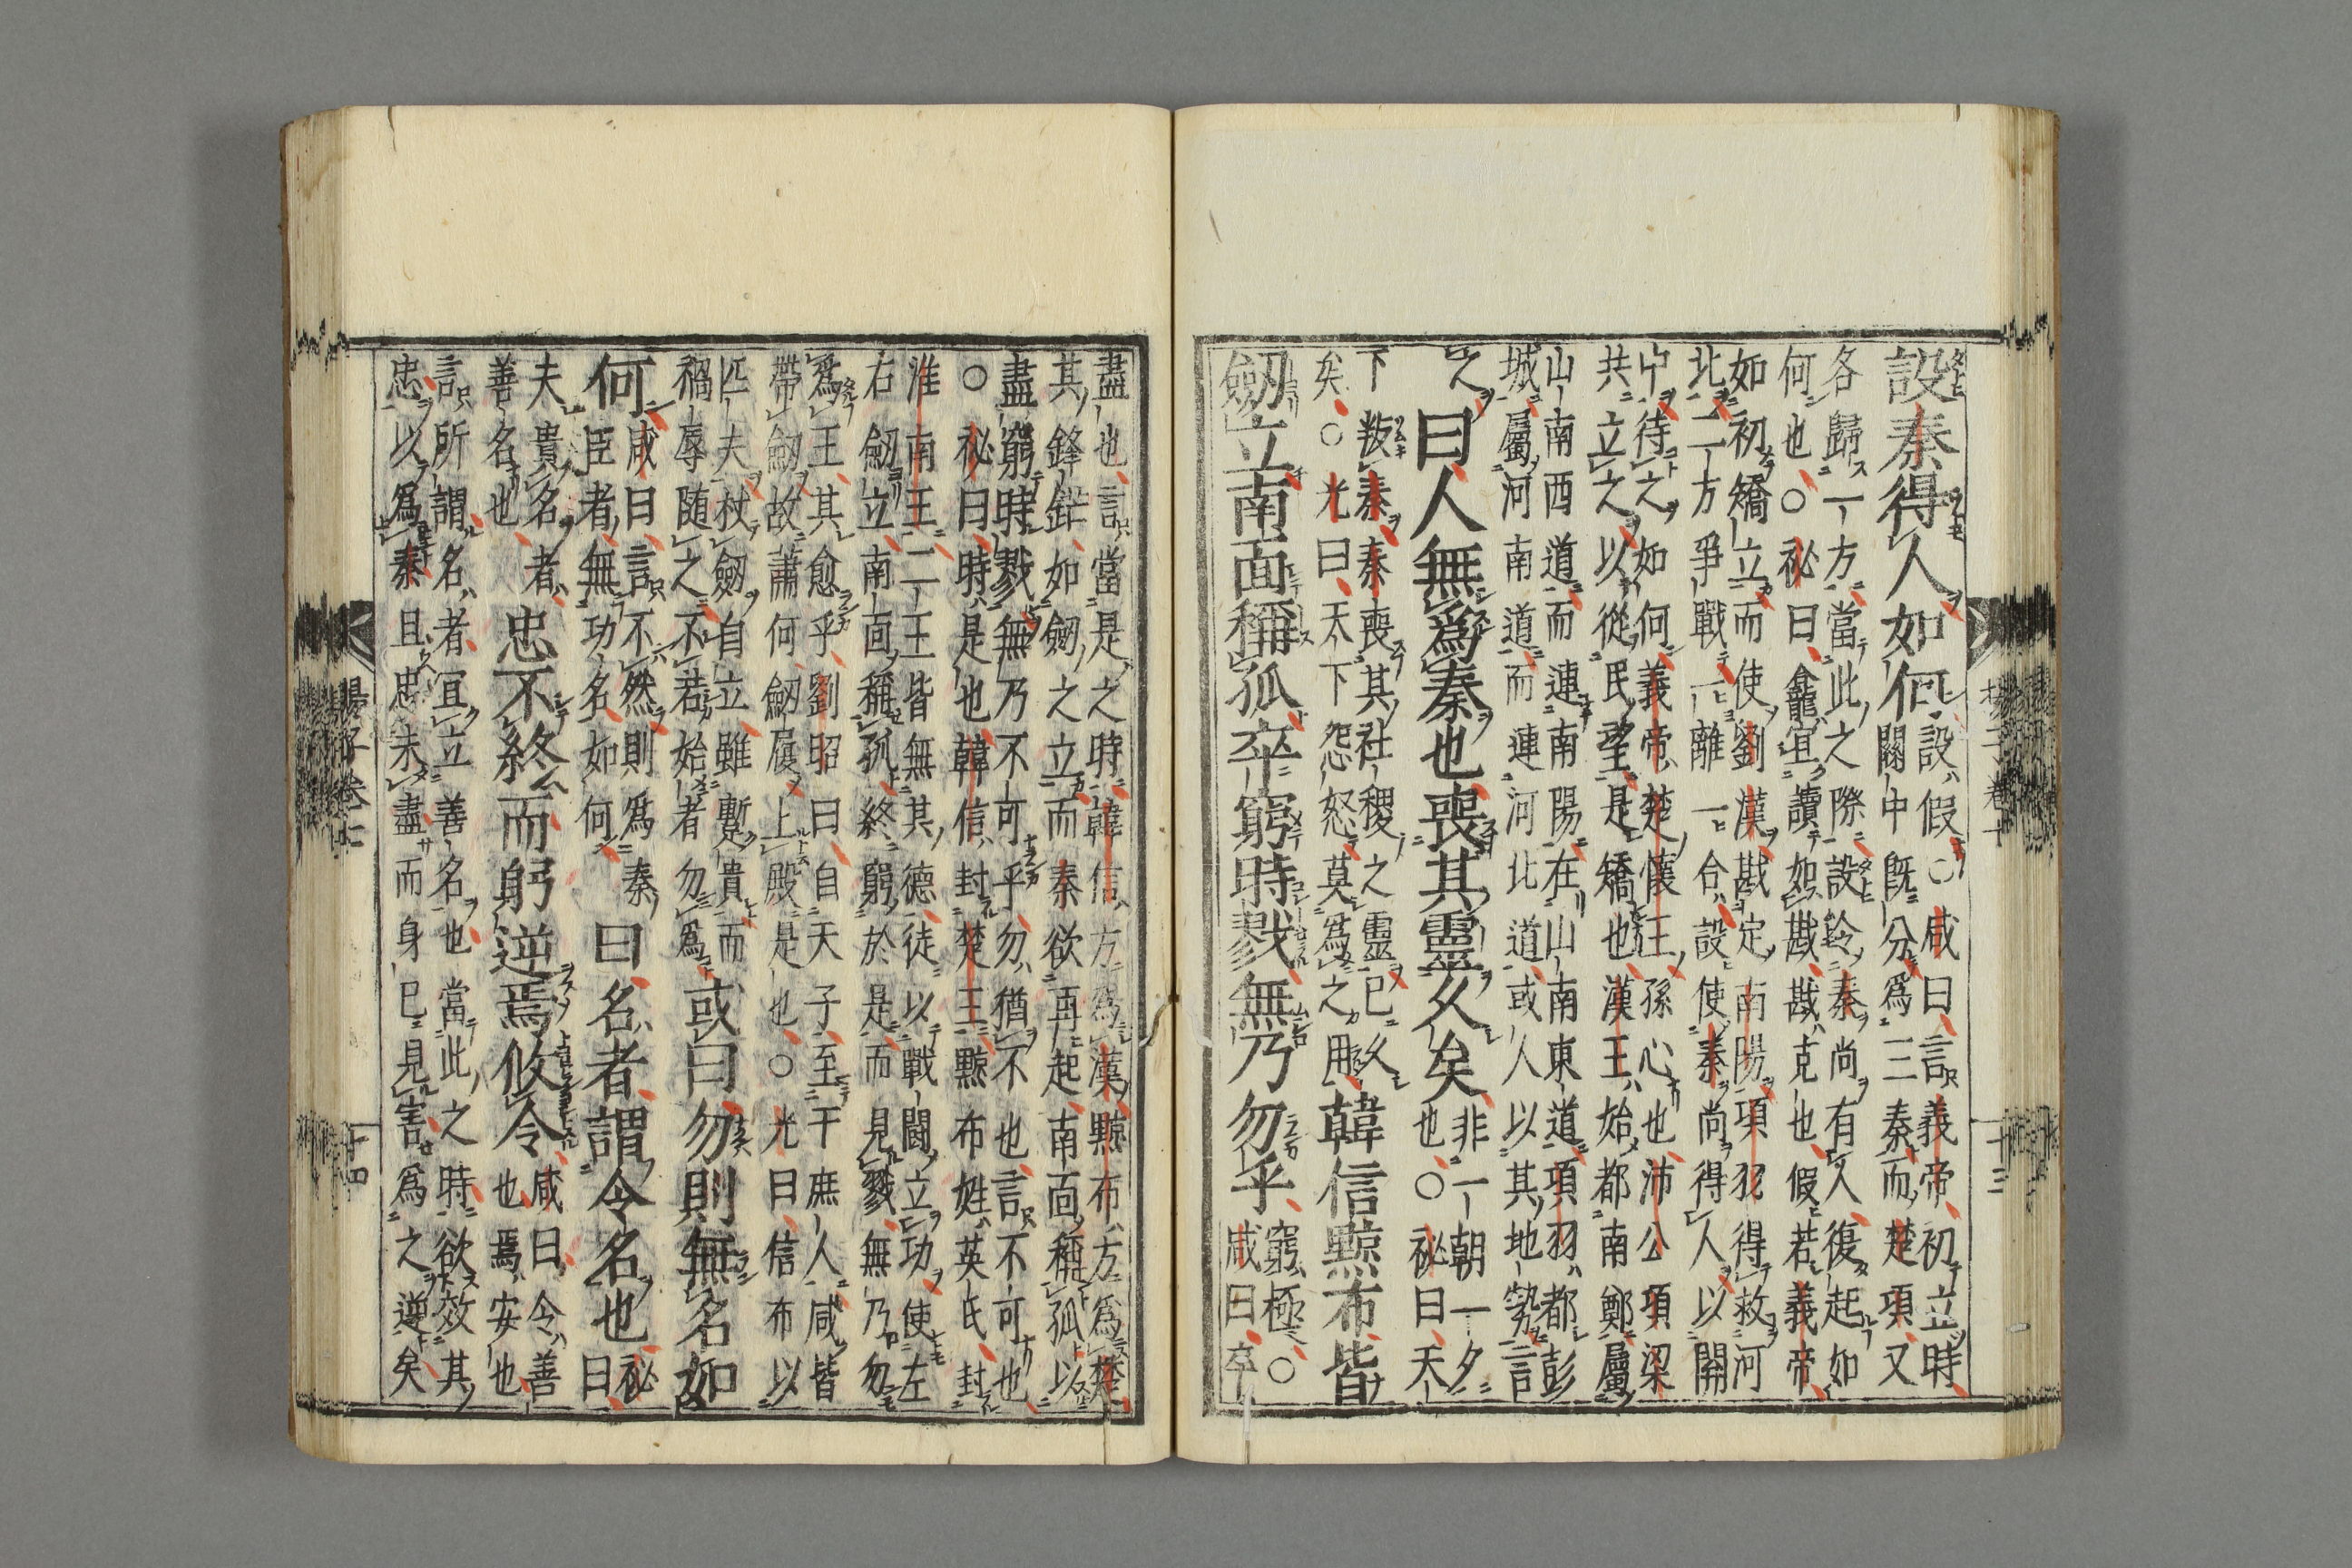 設秦得人如何
設假○咸曰言義帝初立時
關中既分爲三秦而楚項又
各歸一方當此之際設令秦尚有人復起如
何也○祕曰龕宜讀如戡戡克也假若義帝
如初矯立而使劉漢戡定南陽項羽得救河
北二方爭戰一離一合設使秦尚得人以關
中待之如何義帝楚懷王孫心也沛公項梁
共立之以從民望是矯也漢王始都南鄭屬
山南西道而連南陽在山南東道項羽都彭
城屬河南道而連河北道或人以其地勢言
之
曰人無爲秦也喪其靈久矣
非一朝一夕
也○祕曰天
下叛秦秦喪其社稷之靈已久
矣○光曰天下怨怒莫爲之用
韓信黥布皆
劔立南面稱孤卒窮時戮無乃勿乎
窮極○
咸曰卒
盡也言當是之時韓信方爲漢黥布方爲楚
其鋒鋩如劔之立而秦欲再起南面稱孤以
盡窮時戮無乃不可乎勿猶不也言不可也
○祕曰時是也韓信封楚王黥布姓英氏封
淮南王二王皆無其德徒以戰鬪立功使左
右劔立南面稱孤終窮於是而見戮無乃勿
爲王其愈乎劉昭曰自天子至于庶人咸皆
帶劔故蕭何劔履上殿是也○光曰信布以
匹夫杖劔自立雖蹔貴而
禍辱随之不若始者勿爲
或曰勿則無名如
何
咸曰言不然則爲秦
臣者無功名如何
曰名者謂令名也
祕
曰
夫貴名者
善名也
忠不終而躬逆焉攸令
咸曰令善
也焉安也
言所謂名者宜立善名也當此之時欲效其
忠以爲秦且忠未盡而身已見害爲之逆矣
楊子卷七
十三
十四